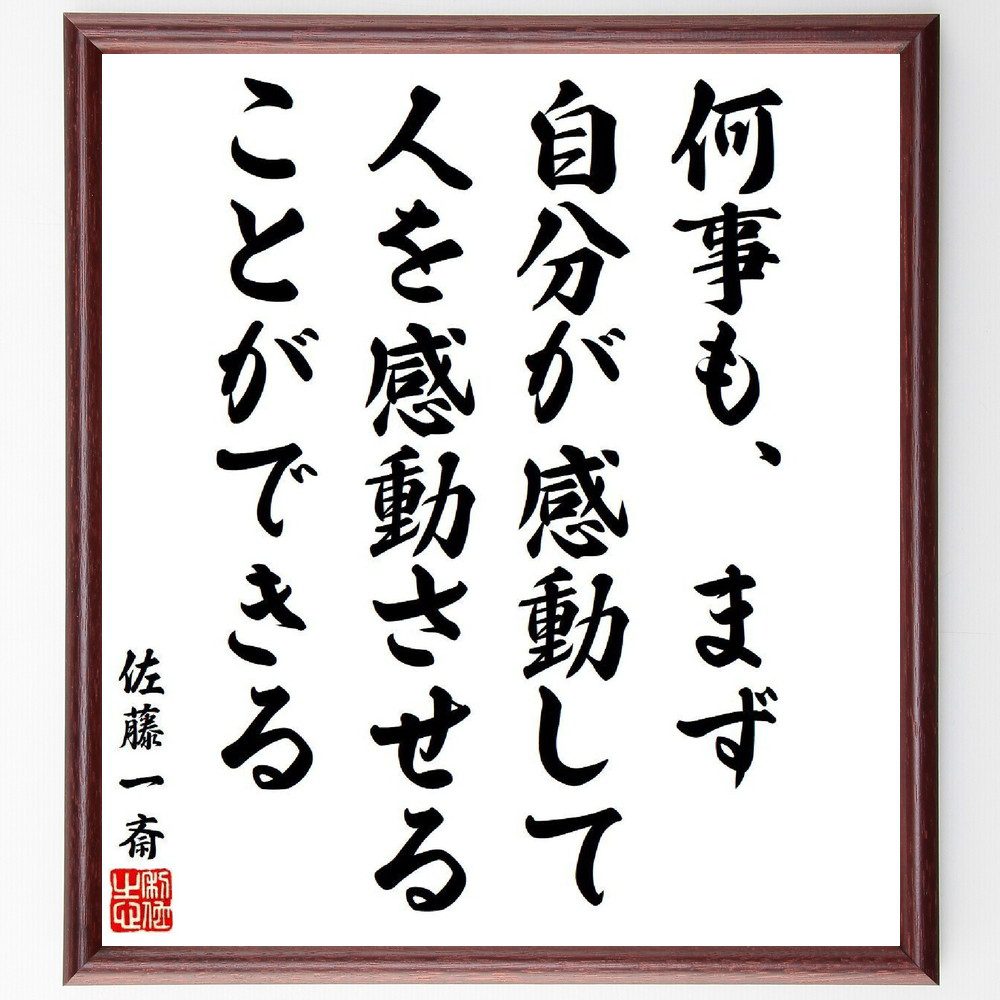 何事も、まず
自分が感動して
人を感動させる
ことができる
佐藤一斎